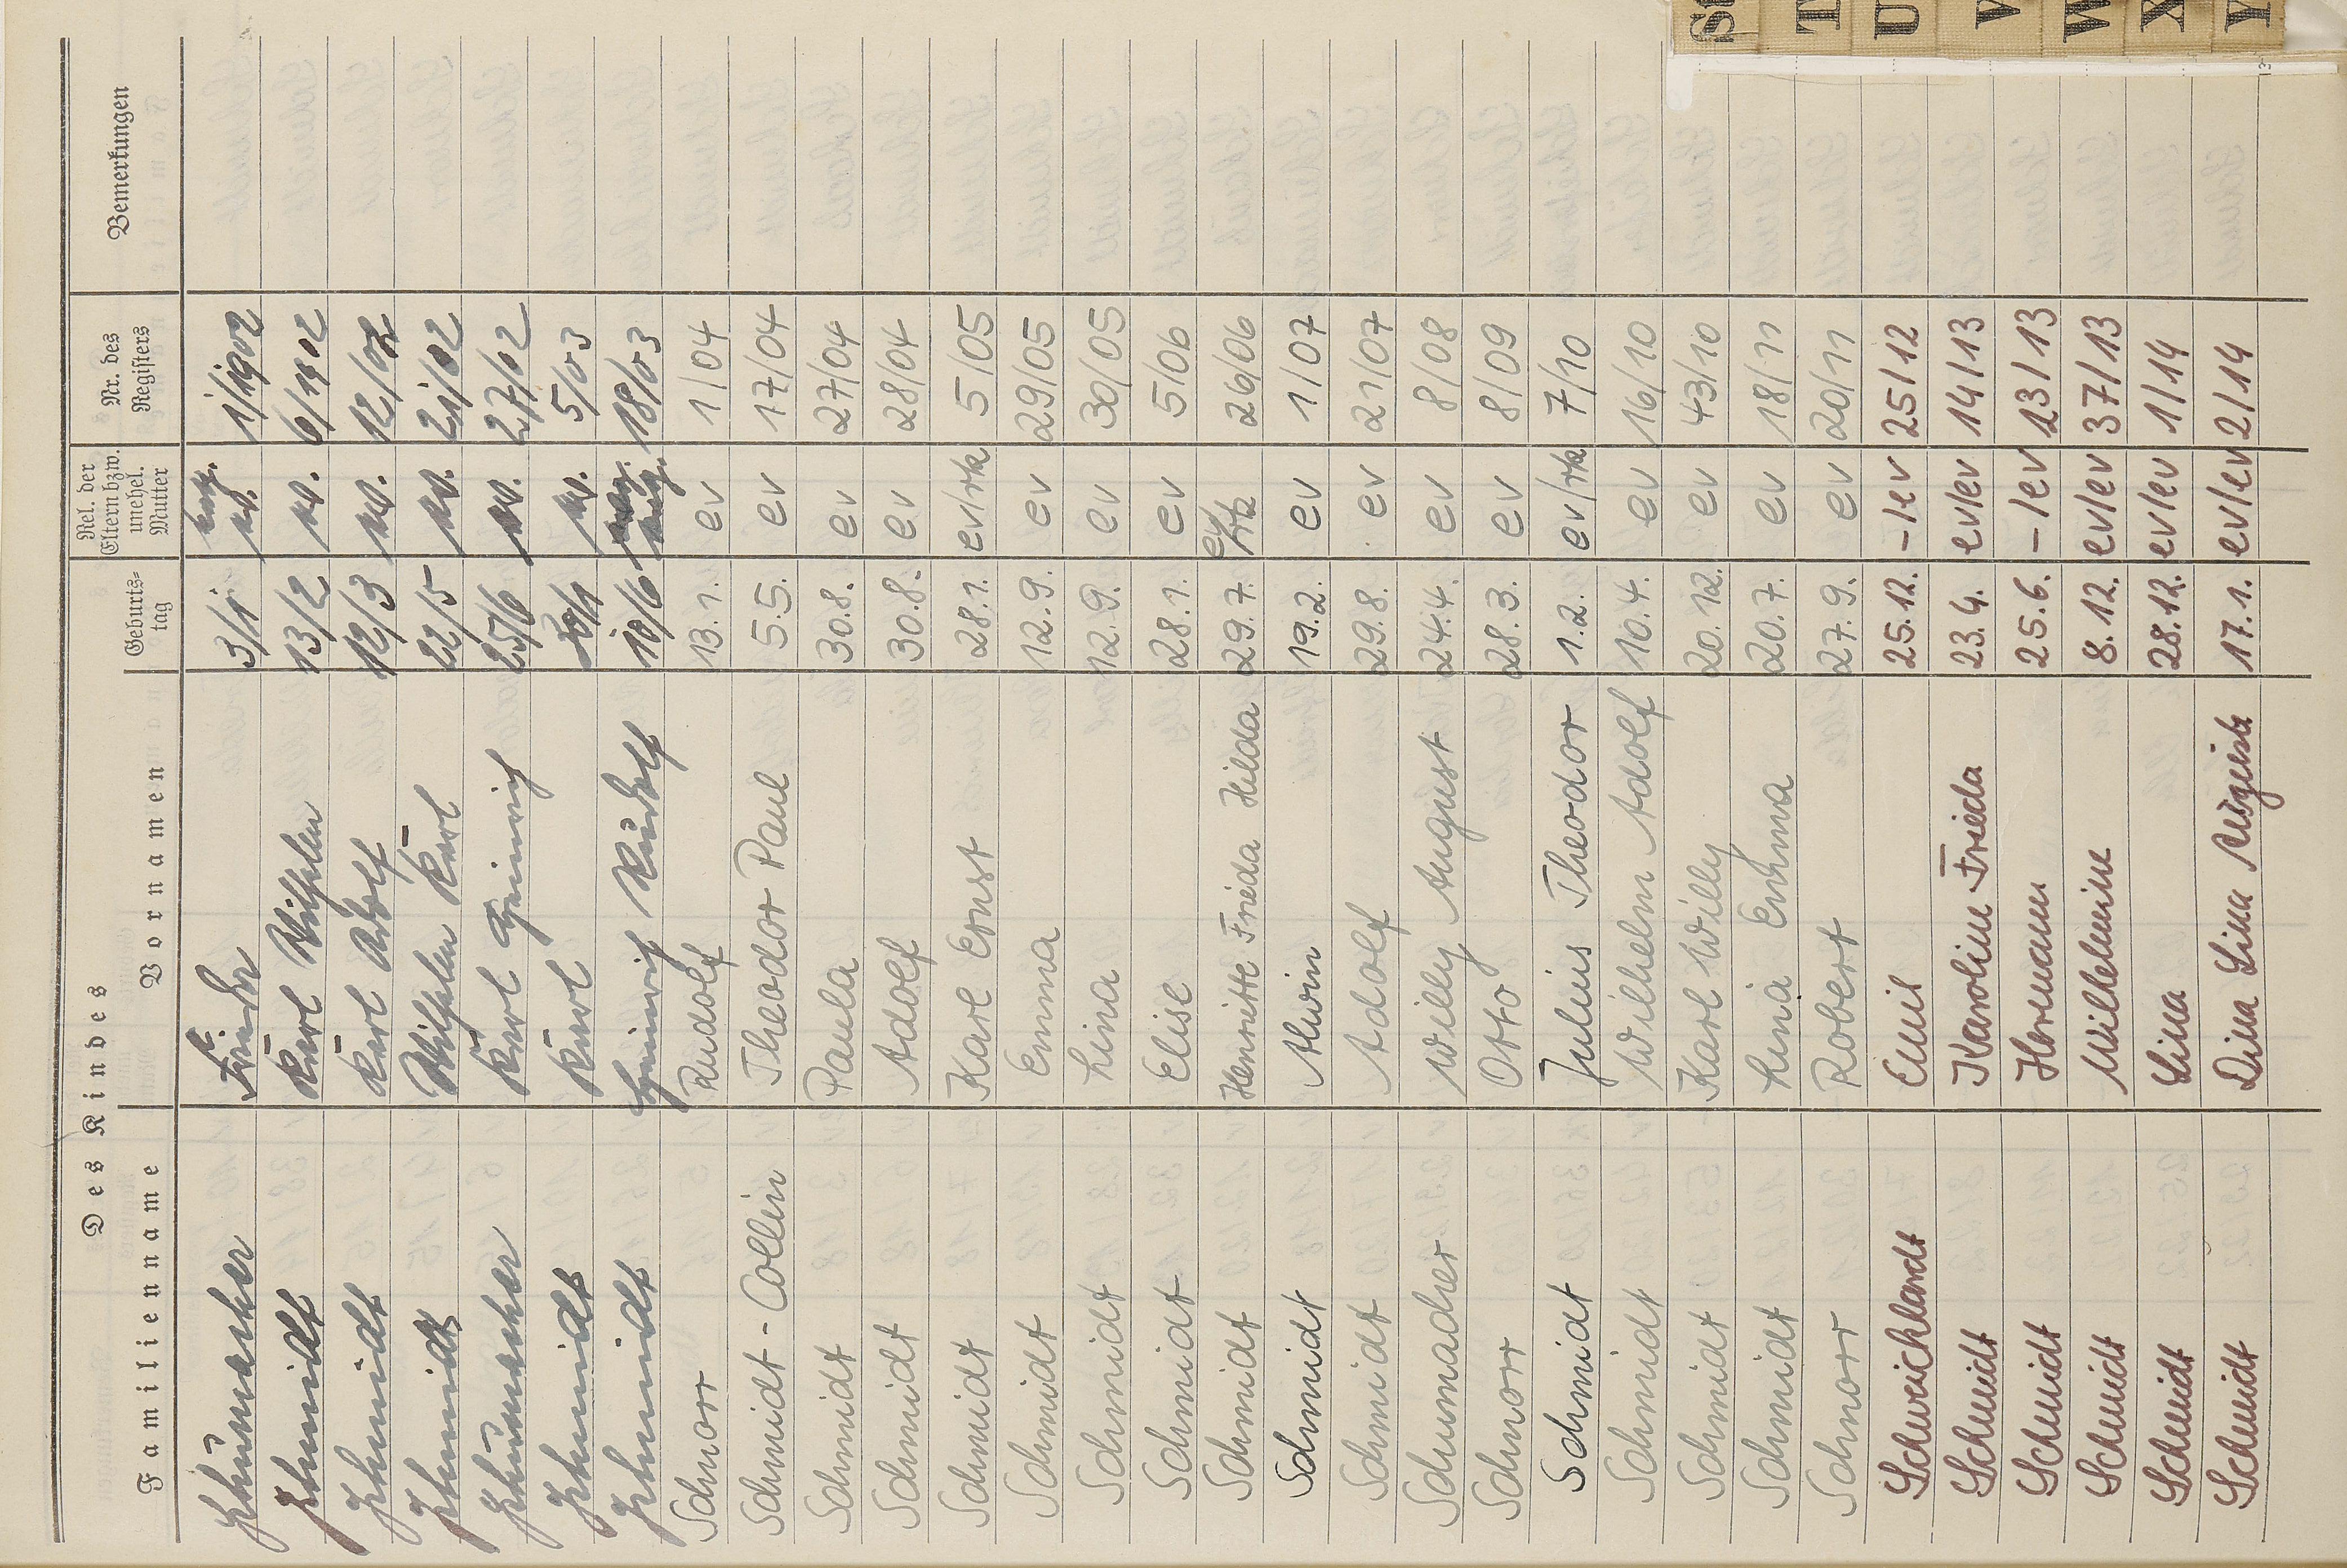 Des Kindes
Familienname Vornamen Geburts-tag Rel. der Eltern bzw. unehel. Mutter Nr. des Registers Bemerkungen
Schumacher Frieda 3/1 ev. 1/1902
Schmidt Karl Wilhelm 13/2 ev. 6/1902
Schmidt Karl Adolf 12/3 ev. 12/02
Schmidt Wilhelm Karl 22/5 ev. 21/02
Schumacher Karl Heinrich 25/6 ev. 27/02
Schmidt Karl ev. 5/03
Schmidt Heinrich Rudolf 10/6 18/03
Schnorr Rudolf 13.1. ev 1/04
Schmidt-Collin Theodor Paul 5.5. ev 17/04
Schmidt Paula 30.8. ev 27/04
Schmidt Adolf 30.8. ev 28/04
Schmidt Karl Ernst 28.1. ev/rk 5/05
Schmidt Emma 12.9. ev 29/05
Schmidt Lina 12.9. ev 30/05
Schmidt Elise 28.1. ev 5/06
Schmidt Henriette Frieda Hilda 29.7. ev/rk 26/06
Schmidt Alwin 19.2. ev 1/07
Schmidt Adolf 29.8. ev 21/07
Schumacher Willy August 24.4. ev 8/08
Schnorr Otto 28.3. ev 8/09
Schmidt Julius Theodor 1.2. ev/rk 7/10
Schmidt Wilhelm Adolf 10.4. ev 16/10
Schmidt Karl Willy 20.12. ev 43/10
Schmidt Lina Emma 20.7. ev 18/11
Schnorr Robert 27.9. ev 20/11
Schweichlardt Emil 25.12. -/ev 25/12
Schmidt Karoline Frieda 23.4. ev/ev 14/13
Schmidt Hermann 25.6. -/ev 23/13
Schmidt Willelmine 8.12. ev/ev 37/13
Schmidt Lina 28.12. ev/ev 1/14
Schmidt Dina Lina Auguste 17.1. ev/ev 2/14
St
T
U
V
W
X
Y